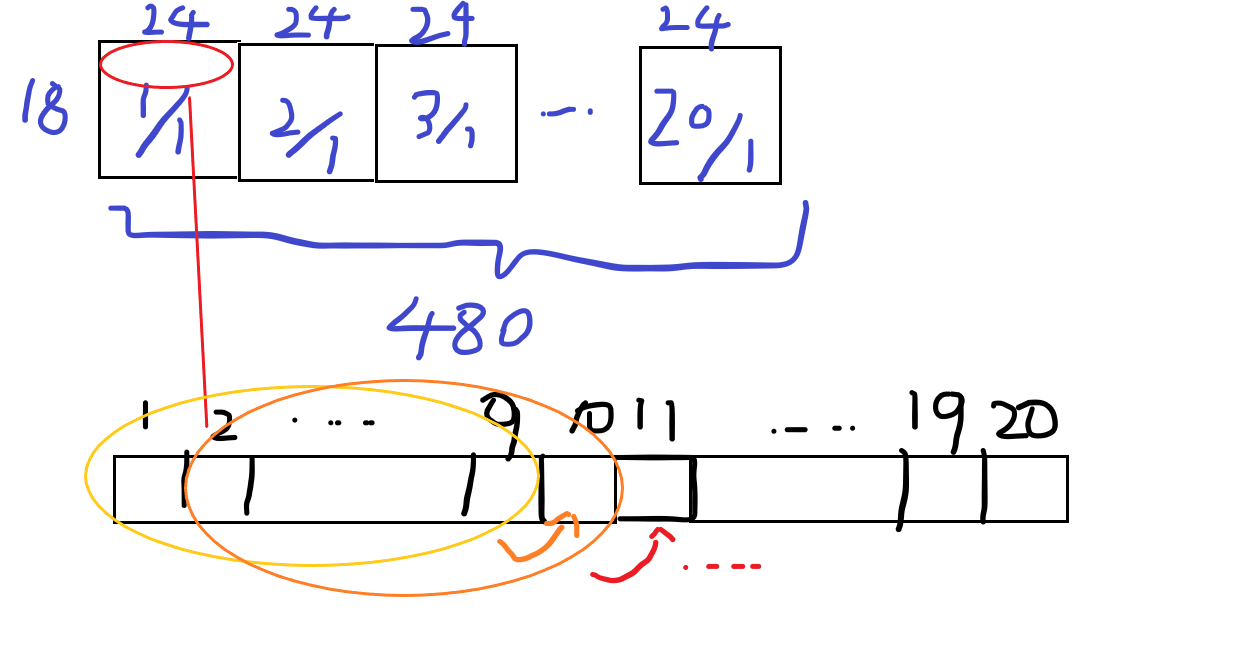 24 24 24 24
18 1/1 2/1 3/1 ---- 20/1
480
1 2 ---- 9 10 11 ---- 19 20
----